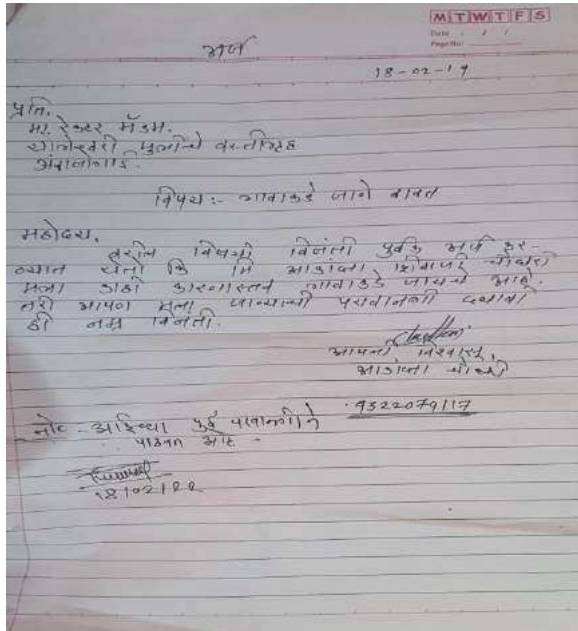 M T W T F S
Date : / /
Page No:
अर्ज
18-02-19
प्रति,
मा. रेक्टर मॅडम.
योगेश्वरी मुलींचे वस्तीगृह
अंबाजोगाई.
विषय :- गावाकडे जाणे बाबत
महोदय,
वरील विषयी विनंती पुर्वक अर्ज कर-
ण्यात येतो कि मि शिवाजी चौधरी
मला काही कारणास्तव गावाकडे जायचे आहे.
तरी आपण मला जाण्याची परवानगी द्यावी
ही नम्र विनंती.
आपला विश्वासू,
चौधरी
9522079117
नोट - आईच्या पुर्व परवानगीने
पाठवत आहे -
18/02/22